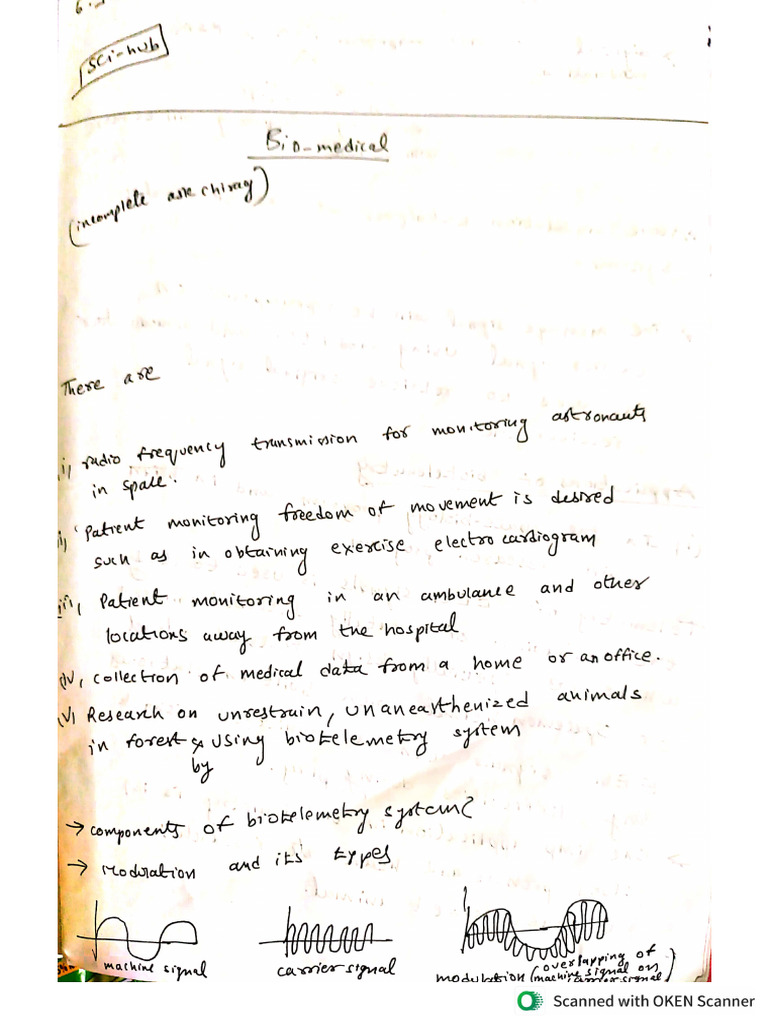 Sci-hub
Bio-medical
(incomplete ask chirag)
There are
i, radio frequency transmission for monitoring astronauts
in space.
Patient monitoring freedom of movement is desired
such as in obtaining exercise electrocardiogram
iii, Patient monitoring in an ambulance and other
locations away from the hospital
iv, collection of medical data from a home or an office.
V) Research on unrestrain, unanearthenized animals
in forest using biotelemetry system
by
→ components of biotelemetry system?
→ Modulation and its types
machine signal
carrier signal
modulation (overlapping of
machine signal on
carrier signal)
Scanned with OKEN Scanner